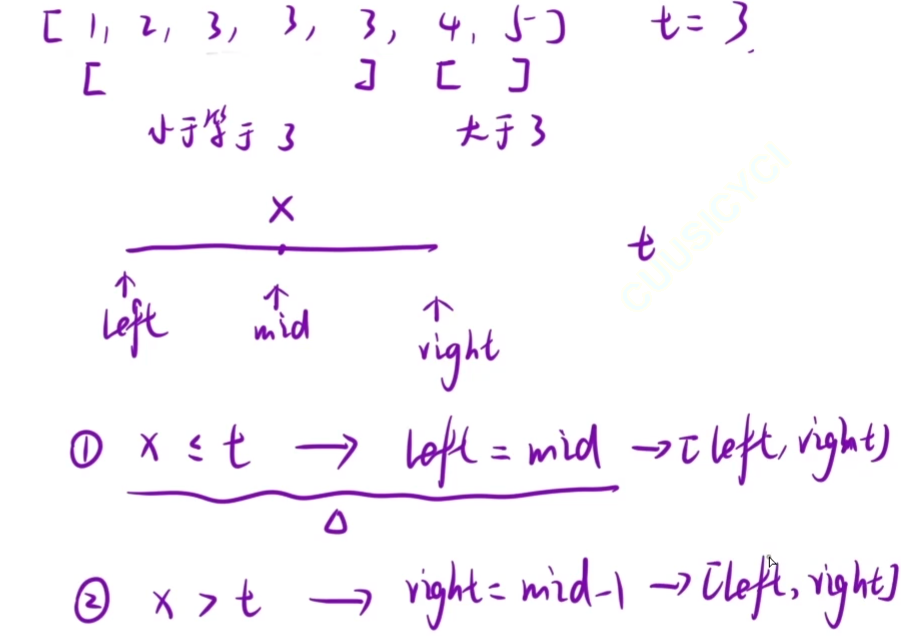 [ 1, 2, 3, 3, 3, 4, 5 ] t = 3.
[ ] [ ]
小于等于 3 大于 3
x
t
left mid right
① x ≤ t → left = mid → [left, right]
② x > t → right = mid-1 → [left, right]
CUUSICYCI